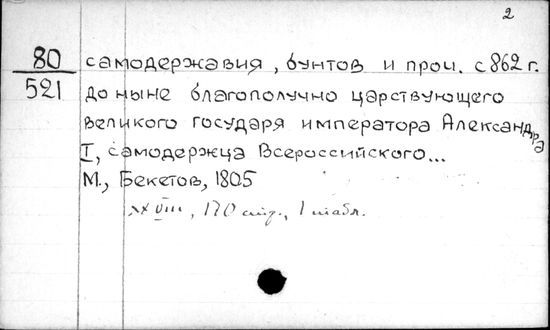 2
80
521
самодержавия, бунтов и проч. с 862 г.
до ныне благополучно царствующего
великого государя императора Александра
I, самодержца Всероссийского...
М., Бекетов, 1805
XXVIII, 170 стр., 1 табл.